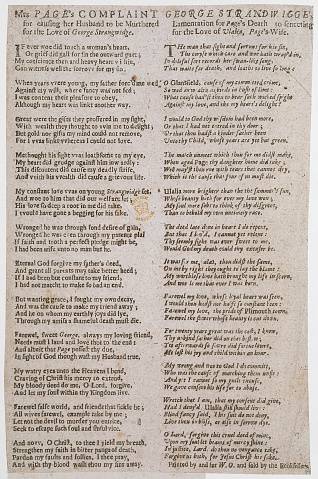 Mrs PAGE'S COMPLAINT
for causing her Husband to be Murthered
for the Love of George Strangwidge.
IF ever woe did touch a woman's heart,
Or grief did gall for sin the inward part,
My conscience then and heavy heart within,
Can witness well the sorrow for my sin.
When years were young, my father
Against my wish, where fancy was not
I was content their pleasure to obey,
Although my heart was linkt another way.
Great were the gifts they proffered in my sight,
With wealth they thought to win me to delight;
But gold nor gifts my mind could not remove,
For I was linkt whereas I could not love.
Methought his sight was loathsome to my eye,
My heart did grudge against him inwardly:
This discontent did cause my deadly strife,
And with his wealth did cause a grievous life.
My constant love was on young Strangwidge set,
And woe to him that did our welfare let;
His love so deep a root in me did take,
I would have gone a begging for his sake.
Wronged he was through fond desire of gain,
Wronged he was even through my parents plain;
If faith and troth a perfect pledge might be,
I had been wife unto no man but he.
Eternal God forgive my father's deed,
And grant all parents may take better heed;
If I had been but constant to my friend,
I had not matcht to make so bad an end.
But wanting grace, I sought my own decay,
And was the cause to make my friend away;
And he on whom my earthly joys did lye,
Through my amiss a shameful death must die.
Farewel, sweet George, always my loving friend,
Needs must I laud and love thee to the end;
And albeit that Page possest thy due,
In sight of God thou wast my Husband true.
My watry eyes unto the Heavens I bend,
Craving of Christ his mercy to extend,
My bloody deed do me, O Lord, forgive,
And let my soul within thy kingdom live.
Farewel false world, and friends that fickle be;
All wives farewel, example take by me;
Let not the devil to murder you entice,
Seek to escape such foul and sinful vice.
And now, O Christ, to thee I yield my breath,
Strengthen my faith in bitter pangs of death,
Pardon my faults and follies, I thee pray,
And with thy blood wash thou my sins away.
GEORGE STRANDWIGGE
Lamentation for Page's Death
for the Love of Ulalia, Page's Wife.
THe man that sighs and sorrows for his sin,
The corps which care and woe hath wrapped in,
In doleful sort records her swan-like song,
That waits for death, and loaths to live so long.
O Glansfield, cause of my
So sed to win
What cause hadst thou to bear such wicked spight
Against my love, and eke my heart's delight?
I would to God thy wisdom had been more,
Or that I had not entred in thy door;
Or that thou hadst a kinder father been
Unto thy Child, whose years are yet but green.
The match unmeet which thou for me didst make,
When aged Page thy daughter home did take;
Well mayst thou rue with tears that cannot dry,
Which is the cause that four of us must die.
Ulalia more brighter than the summer's sun,
Whose beauty hath for ever my love won;
My soul more sobs to think of thy disgrace,
Than to behold my own untimely race.
The deed late done in heart I do repent,
But that I lov'd, I cannot yet relent;
Thy seemly sight was ever sweet to me,
Would God my death could thy excuser be.
It was for me, alas, thou didst the same,
On me by right they ought to lay the blame:
My worthless love hath brought my life in scorn,
And woe is me that ever I was born.
Farewel my love, whose loyal heart was seen,
I would thou hadst not half so constant been:
Farewel my love, the pride of Plymouth town,
Farewel the flower whose beauty is cut down.
For twenty years great was the cost, I know,
Thy unkind father did on thee bestow;
Yet afterwards so sore did fortune lowre,
He lost his joy and child within an hour.
My wrong and woe to God I do commit,
Who was the cause of matching them unfit:
And yet I cannot so my guilt
We gave consent his life for to abuse.
Wretch that I am, that my consent did give,
Had I deny'd Ulalia still should live:
Blind fancy said, This suit do not deny,
Live thou in bliss, or else in sorrow dye.
O Lord, forgive this cruel deed of mine,
Upon my soul let beams of mercy shine;
In justice, Lord, do thou no vengeance take,
Forgive us both for Jesus Christ his sake.
Printed by and for W. O. and sold by the Booksellers.